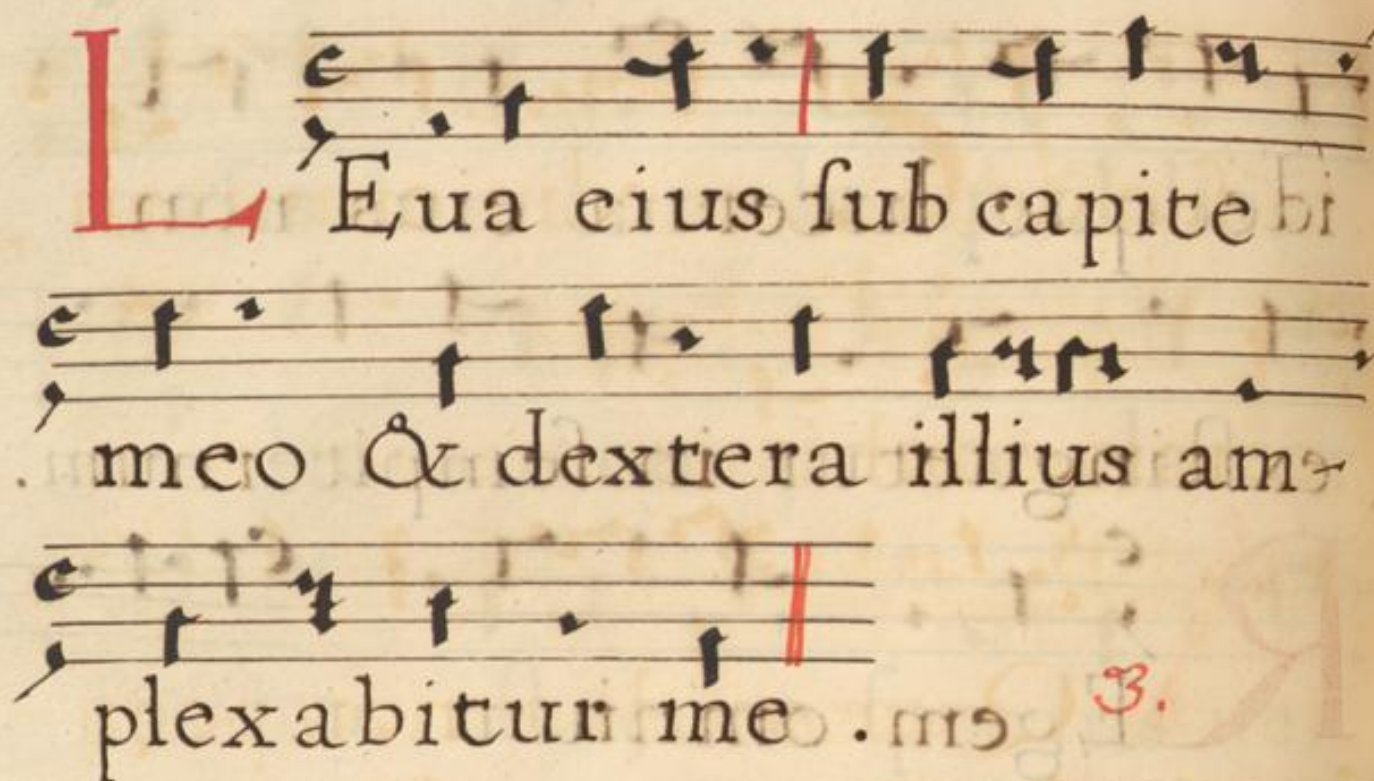 LEua eius ſub capite
meo & dextera illius am-
plexabitur me .
3.